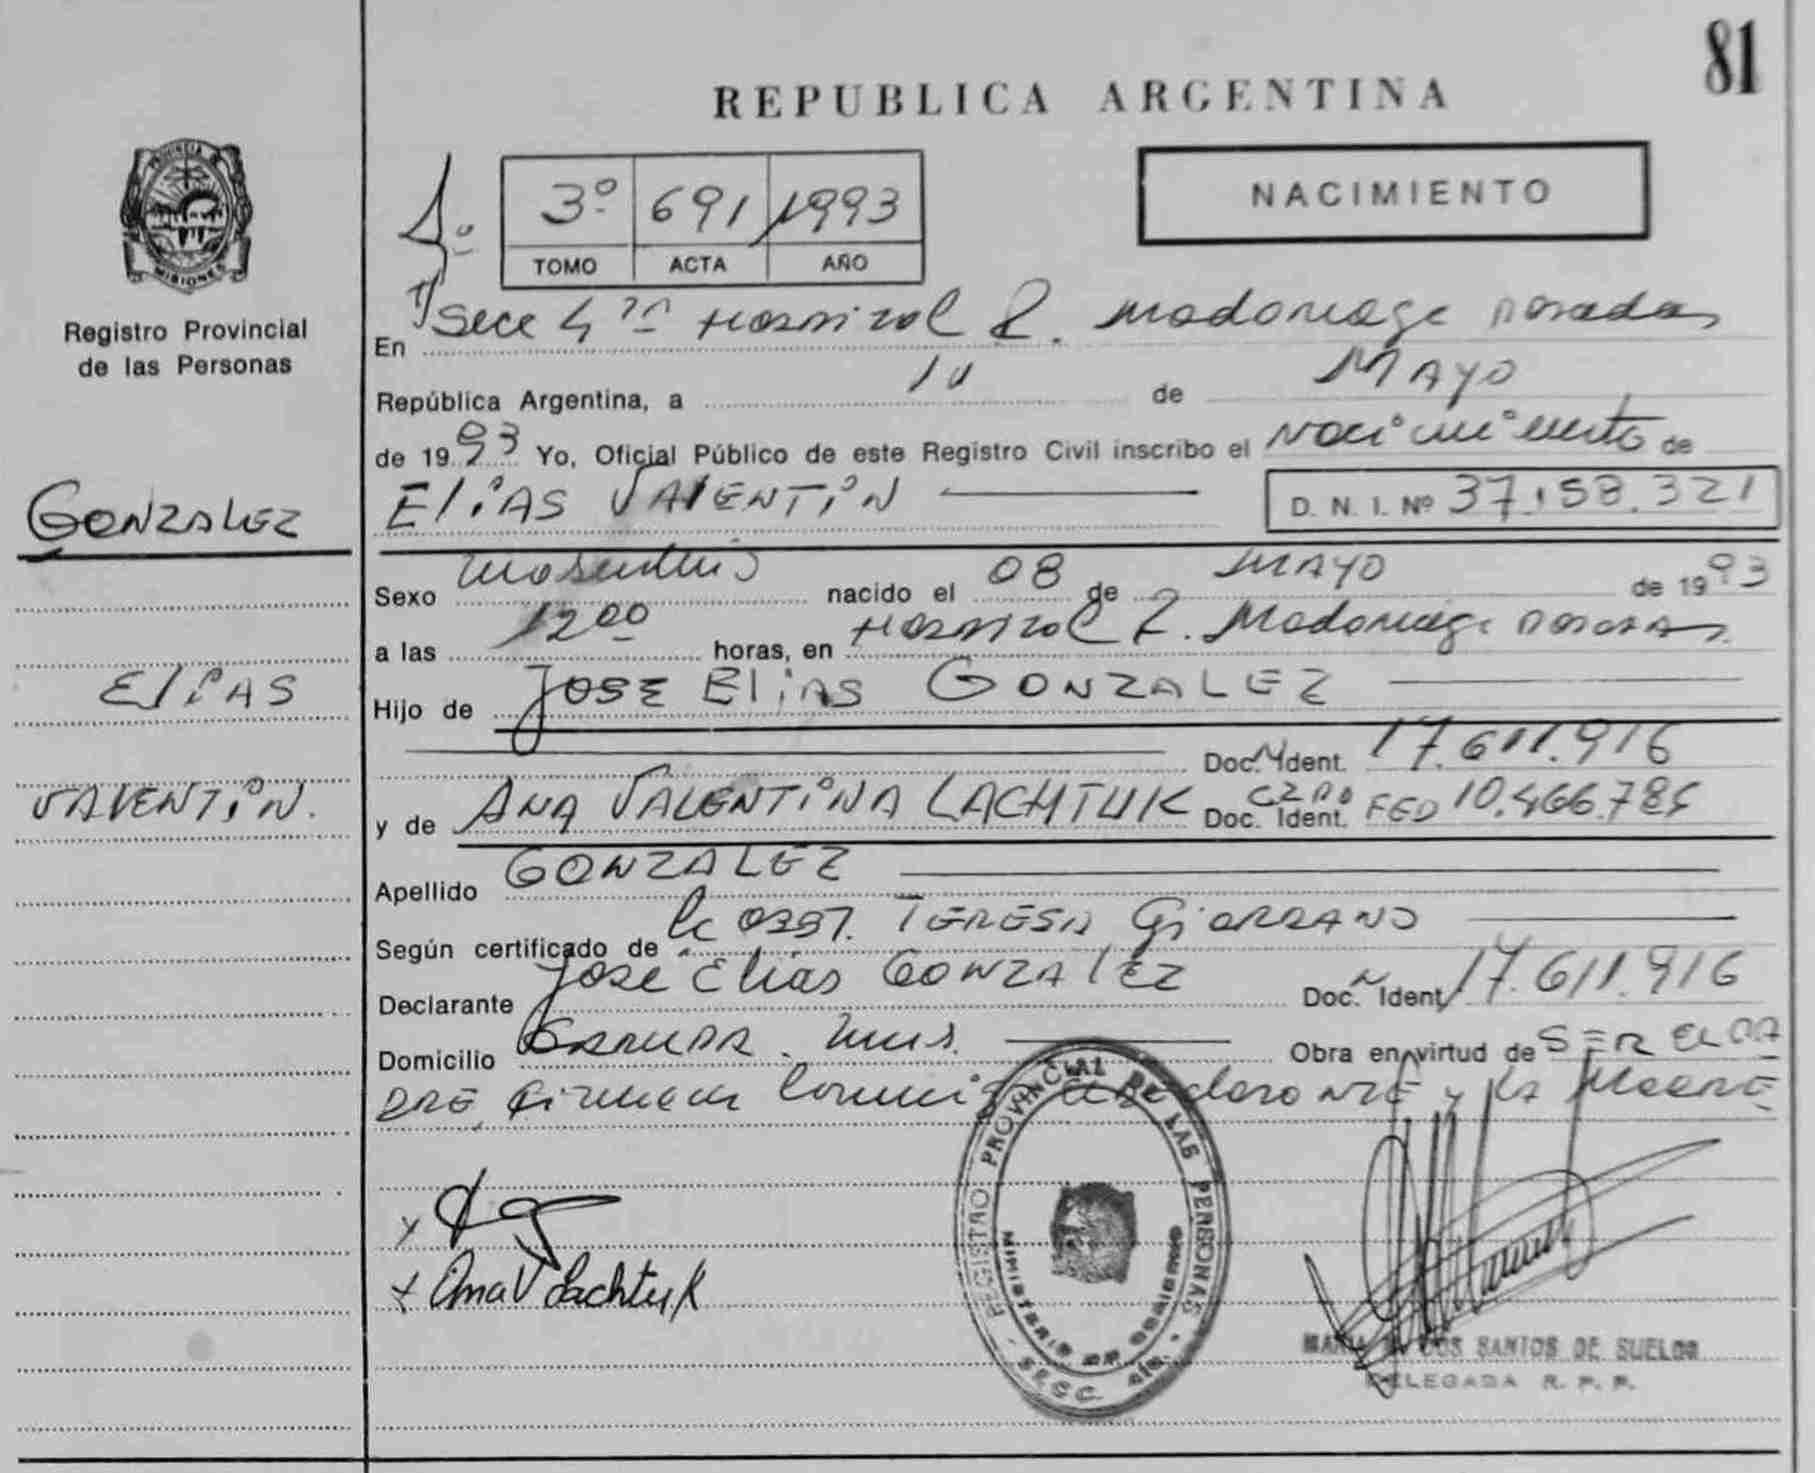 81
REPUBLICA ARGENTINA
PROVINCIA DE
MISIONES
Registro Provincial
de las Personas
1º
3º 691 1993
TOMO ACTA AÑO
NACIMIENTO
En Secc 4ta Hospital R. Madariaga Posadas
República Argentina, a 10 de MAYO
de 1993 Yo, Oficial Público de este Registro Civil inscribo el Nacimiento de
GONZALEZ
ELIAS VALENTIN
D. N. I. Nº 37.158.321
Sexo Masculino nacido el 08 de MAYO de 1993
a las 12 00 horas, en Hospital R. Madariaga Posadas
ELIAS
Hijo de JOSE ELIAS GONZALEZ
Doc. Ident. 17.611.916
VALENTIN.
y de ANA VALENTINA LACHTUK Doc. Ident. FED 10.466.785
Apellido GONZALEZ
Según certificado de TERESA
Declarante Jose Elias GONZALEZ Doc. Ident 17.611.916
Domicilio Obra en virtud de SER EL PA
DRE, firman y LA MADRE
x
x Ana V Lachtuk
REGISTRO PROVINCIAL DE LAS PERSONAS
MINISTERIO DE GOBIERNO
SECC. 4ta.
MARIA DOS SANTOS DE SUELDO
DELEGADA R. P. P.